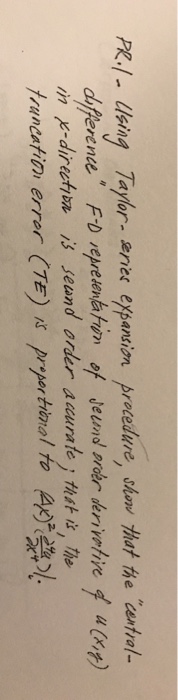 PR.1- Using Taylor-series expansion procedure, show that the "central-
difference" F-D representation of second order derivative of u(x,y)
in x-direction is second order accurate; that is, the
truncation error (TE) is proportional to (Δx)² (∂⁴u/∂x⁴).